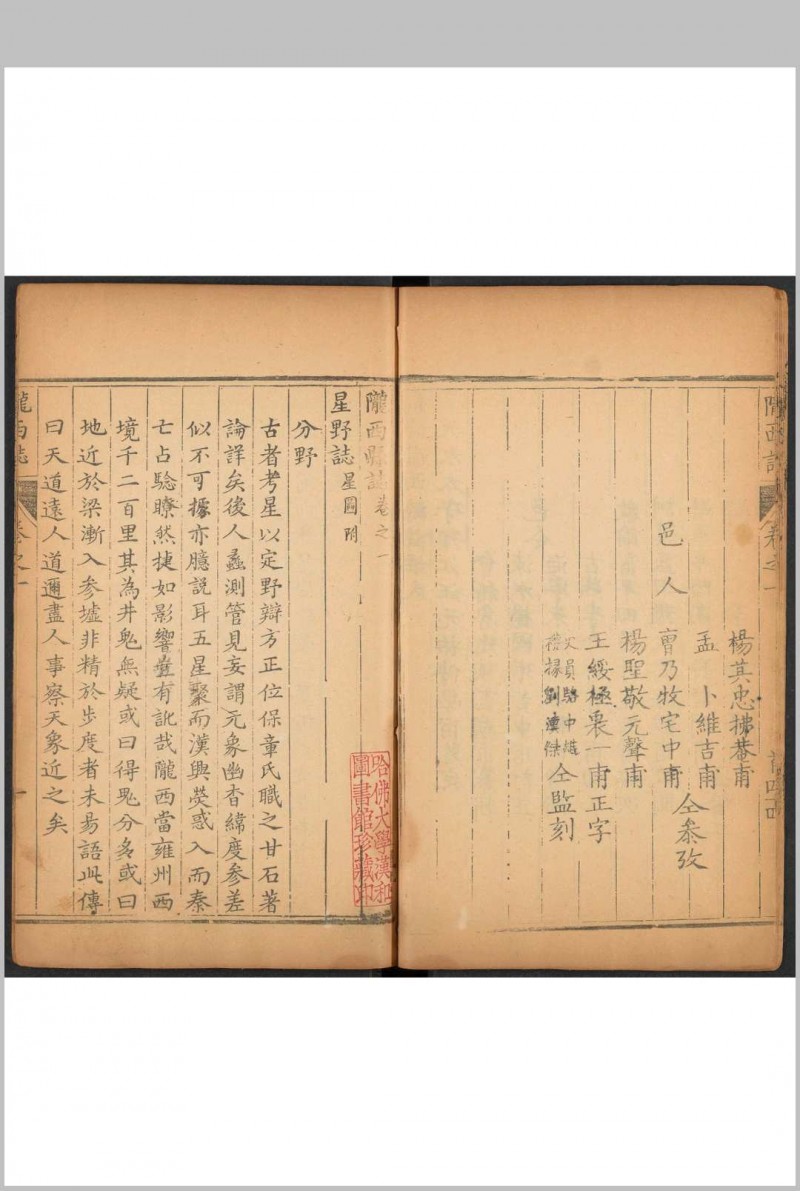 隴西誌
卷之一
邑人
楊其忠拂菴甫
孟卜維吉甫
曹乃牧宅中甫
仝叅攷
楊聖敬元聲甫
王綏極衷一甫正字
仝監刻
隴西縣誌卷之一
星野誌 星圖附
分野
古者考星以定野辯方正位保章氏職之甘石著
論詳矣後人蠡測管見妄謂元象幽杳緯度參差
似不可據亦臆說耳五星聚而漢興熒惑入而秦
亡占驗瞭然捷如影響豈有訛哉隴西當雍州西
境千二百里其為井鬼無疑或曰得鬼分多或曰
地近於梁漸入參墟非精於步度者未易語此傳
曰天道遠人道邇盡人事察天象近之矣
隴西誌
卷之一
一
哈佛大學漢和
圖書館珍藏印